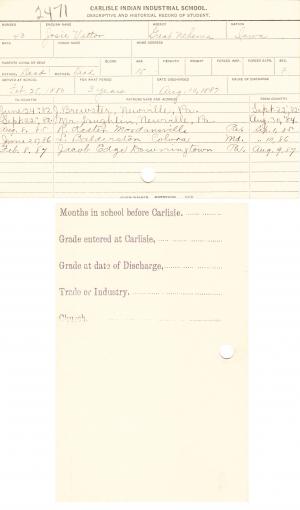 2471
CARLISLE INDIAN INDUSTRIAL SCHOOL.
DESCRIPTIVE AND HISTORICAL RECORD OF STUDENT.
NUMBER ENGLISH NAME AGENCY NATION
43 Josie Vetter Great Nemaha Iowa
BAND INDIAN NAME HOME ADDRESS
PARENTS LIVING OR DEAD BLOOD AGE HEIGHT WEIGHT FORCED INSP. FORCED EXPR. SEX
FATHER, Dead MOTHER, Dead 15 F
ARRIVED AT SCHOOL FOR WHAT PERIOD DATE DISCHARGED CAUSE OF DISCHARGE
Feb 25, 1880 3 years Aug. 19, 1887
TO COUNTRY PATRONS NAME AND ADDRESS FROM COUNTRY
June 24, '82 Brewster, Newville, Pa. Sept 22, '82
Sept 22, '82 Mr. Laughlin, Newville, Pa. Aug. 30, '84
R. Lester Mordansville Pa.
June 20, 86 L. Balderston Colora Md. " 10, 86
Feb. 8, '87 Jacob Edge Downingtown Pa. Aug. 9, 87
Months in school before Carlisle,
Grade entered at Carlisle,
Grade at date of Discharge,
Trade or Industry.
Church.